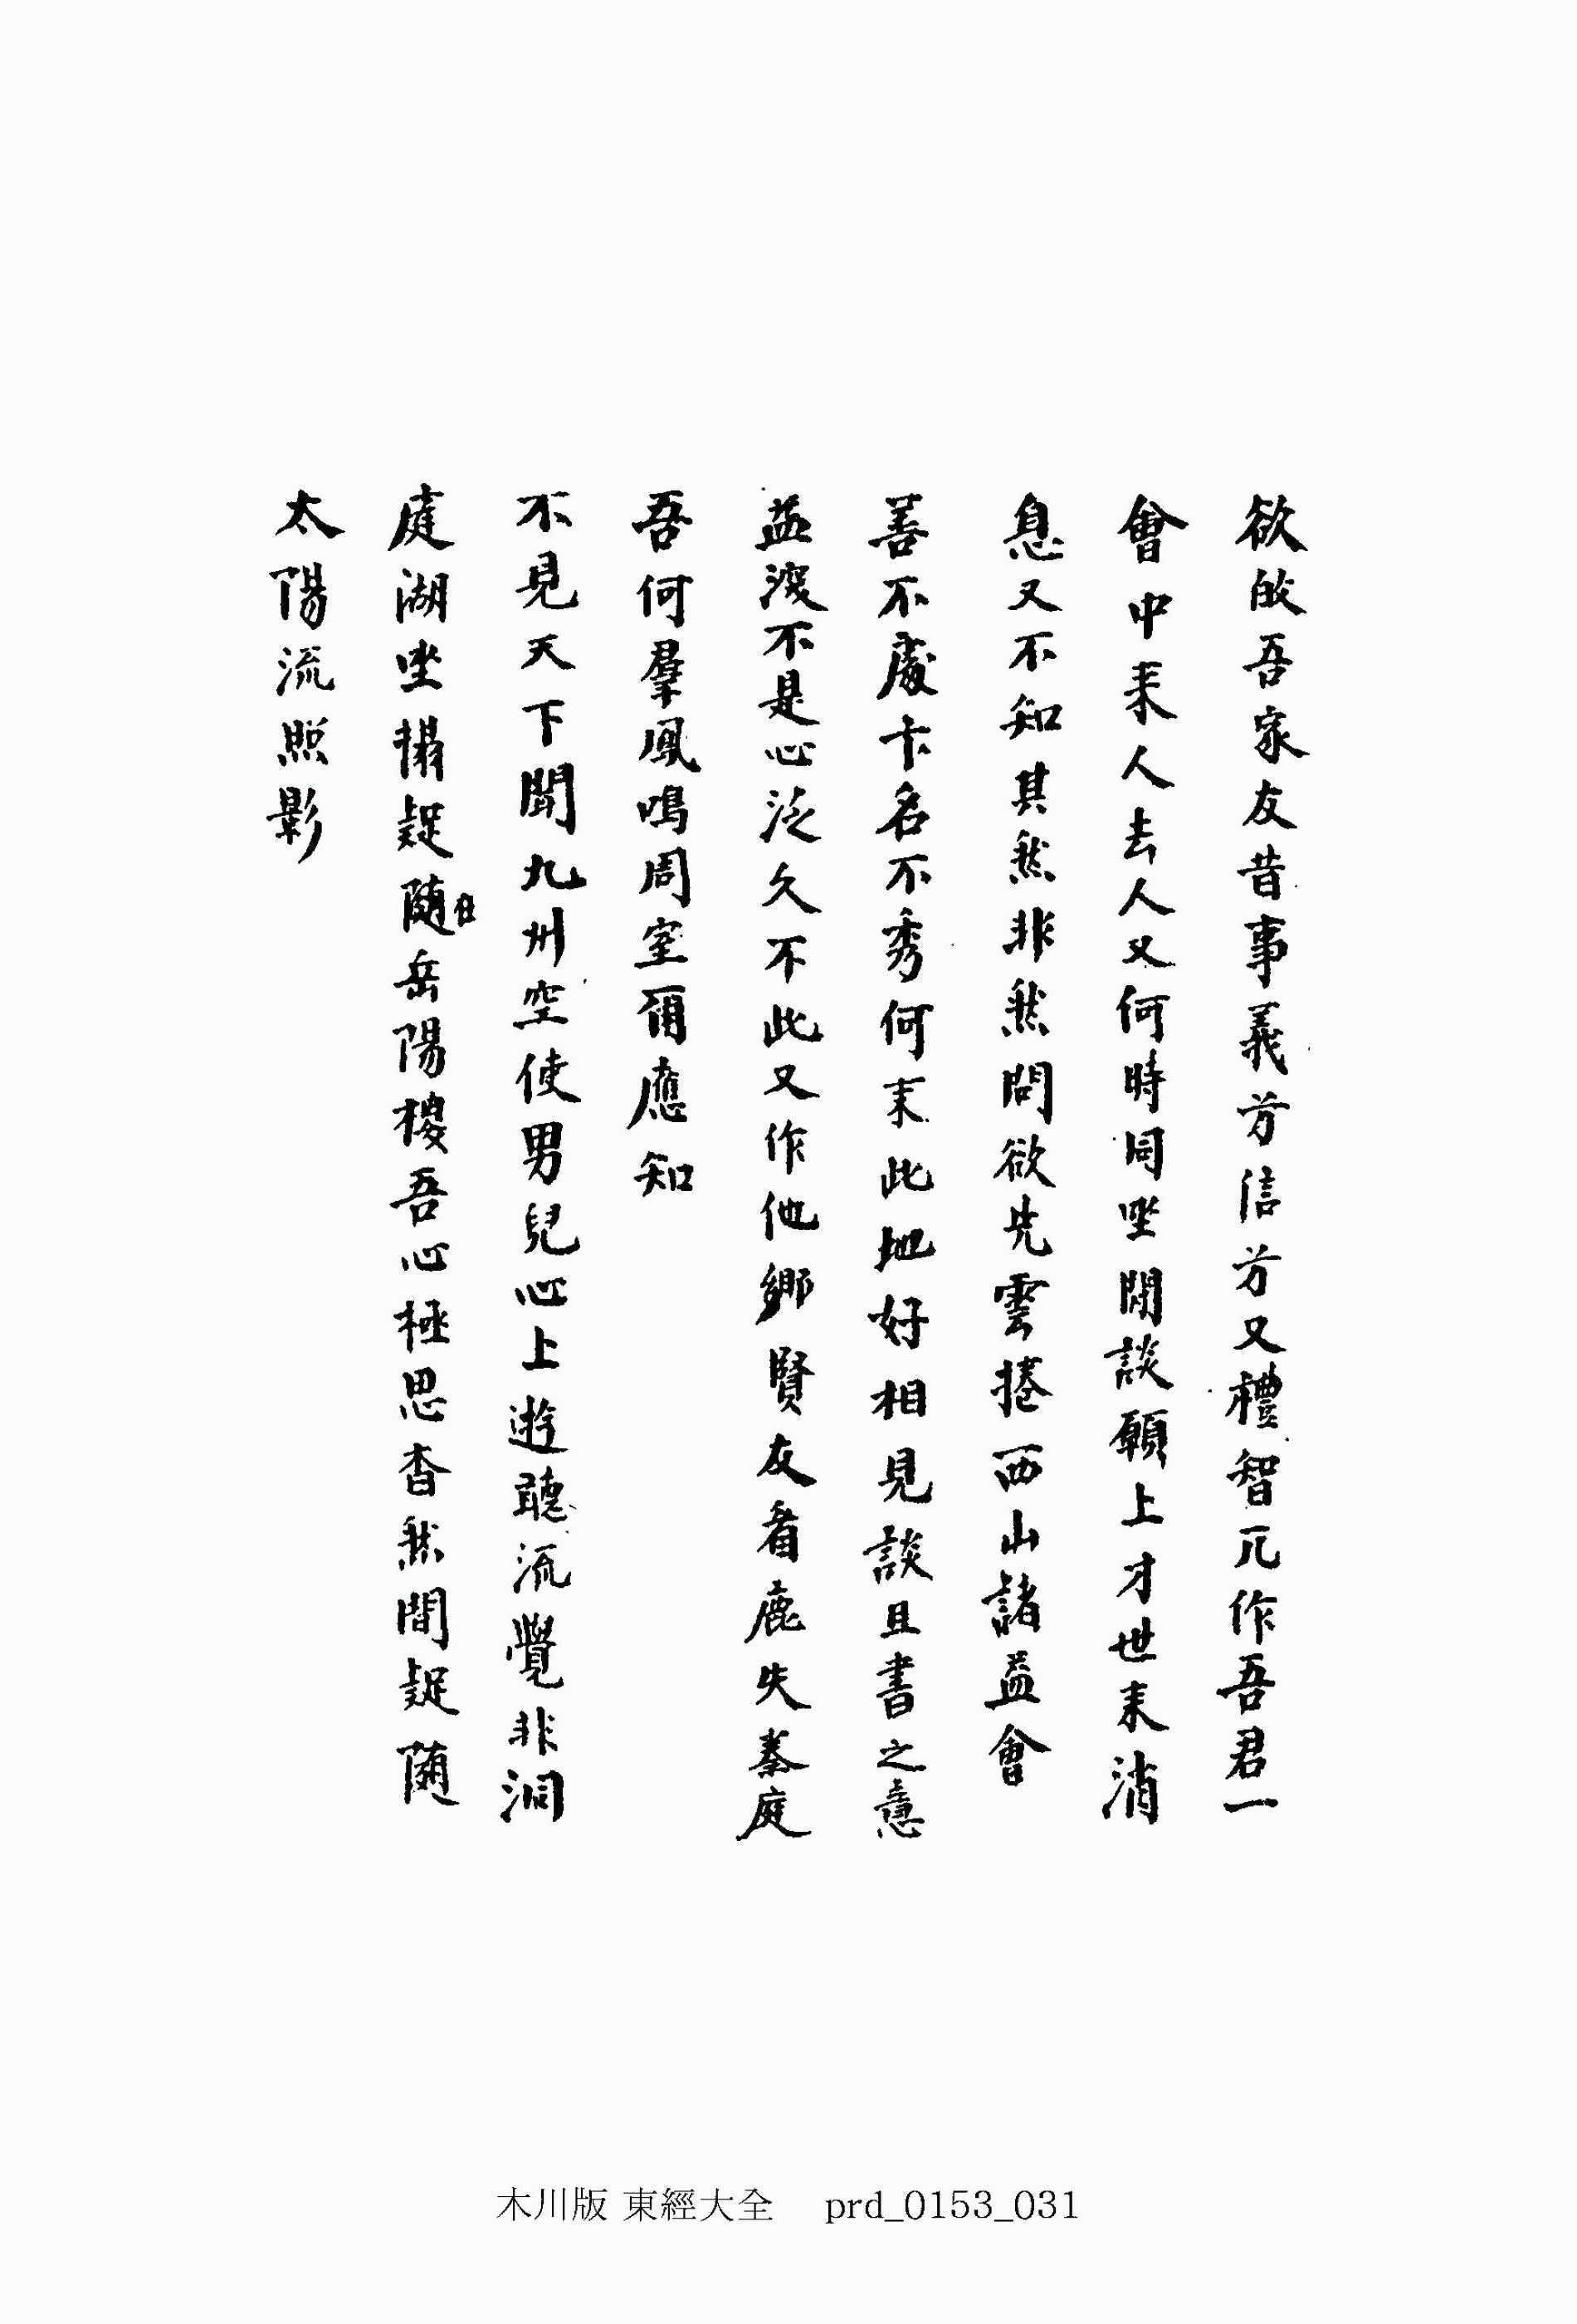 欲敀吾家友昔事義兮信兮又禮智兀作吾君一
會中来人去人又何時同坐閒談願上才世来消
息又不知其然非然問欲先雲捲西山諸益會
善不處卞名不秀何来此地好相見談且書之意
益深不是心泛久不此又作他鄉賢友看鹿失秦庭
吾何羣鳳鳴周室爾應知
不見天下聞九州空使男兒心上遊聽流覺非洞
庭湖坐榻疑隨在岳陽樓吾心極思杳然間疑隨
太陽流照影
木川版 東經大全 prd_0153_031